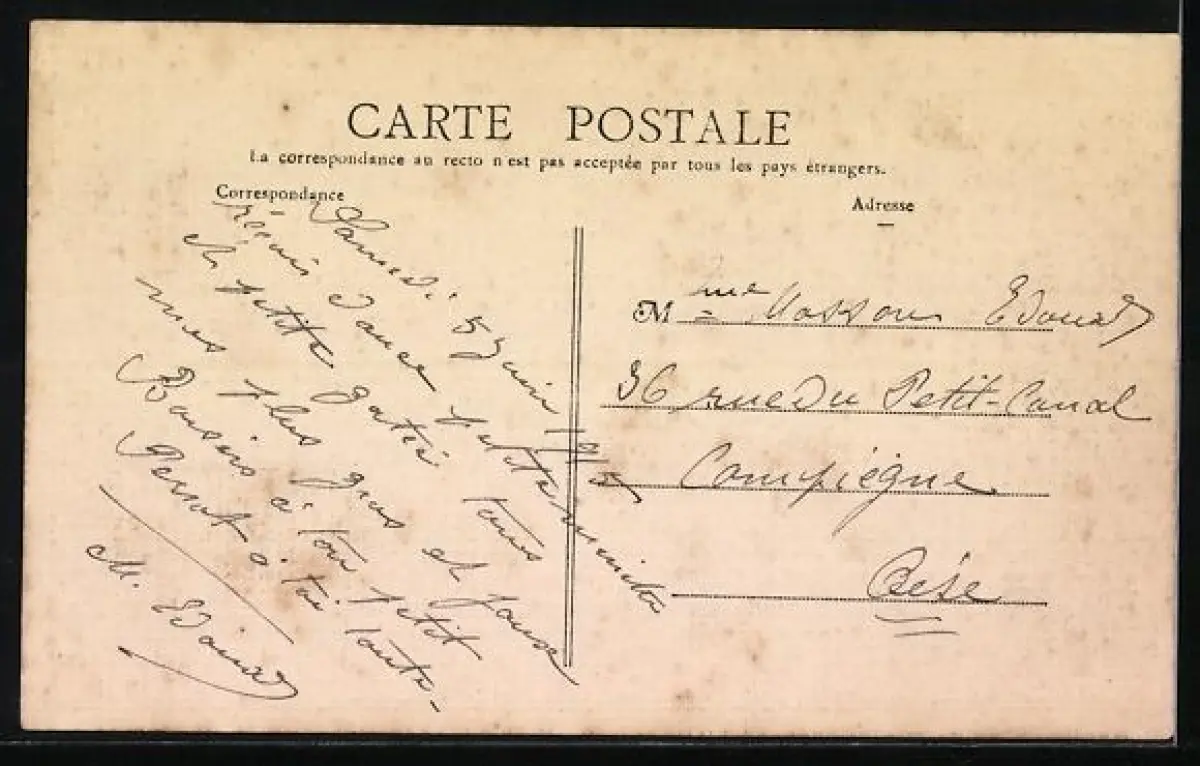 CARTE POSTALE
La correspondance au recto n'est pas acceptée par tous les pays étrangers.
Correspondance
Adresse
Samedi 5 Juin
petite
et petite gatée tous
mes plus gros et
Baisers à ton petit
à toi toute-
M. Edouard
Mme Masson Edouard
36 rue du Petit-Canal
Compiègne
Oise